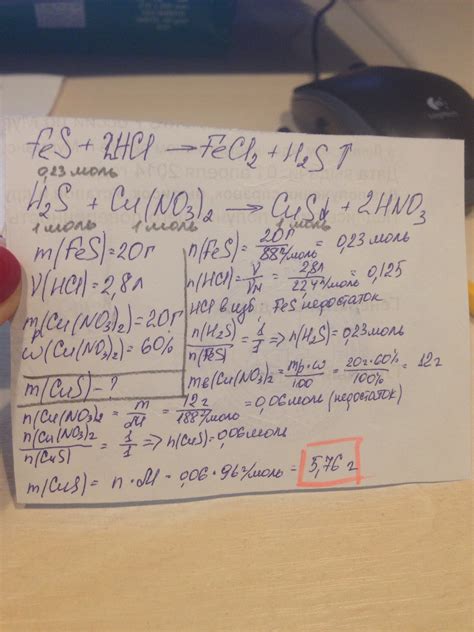 FeS + 2HCl → FeCl₂ + H₂S ↑
0,23 моль
H₂S + Cu(NO₃)₂ → CuS↓ + 2HNO₃
1 моль 1 моль 1 моль
m(FeS) = 20 г
V(HCl) = 2,8 л
mр(Cu(NO₃)₂) = 20 г
ω(Cu(NO₃)₂) = 60%
m(CuS) - ?
n(FeS) = 20 г / 88 г/моль = 0,23 моль
n(HCl) = V / Vм = 2,8 л / 22,4 л/моль = 0,125
HCl в изб, FeS недостаток
n(H₂S) / n(FeS) = 1/1 => n(H₂S) = 0,23 моль
mв(Cu(NO₃)₂) = mр·ω / 100 = 20г·60% / 100% = 12 г
n(Cu(NO₃)₂ = m / M = 12 г / 188 г/моль = 0,06 моль (недостаток)
n(Cu(NO₃)₂ / n(CuS) = 1/1 => n(CuS) = 0,06 моль
m(CuS) = n · M = 0,06 · 96 г/моль = 5,76 г
Logitech